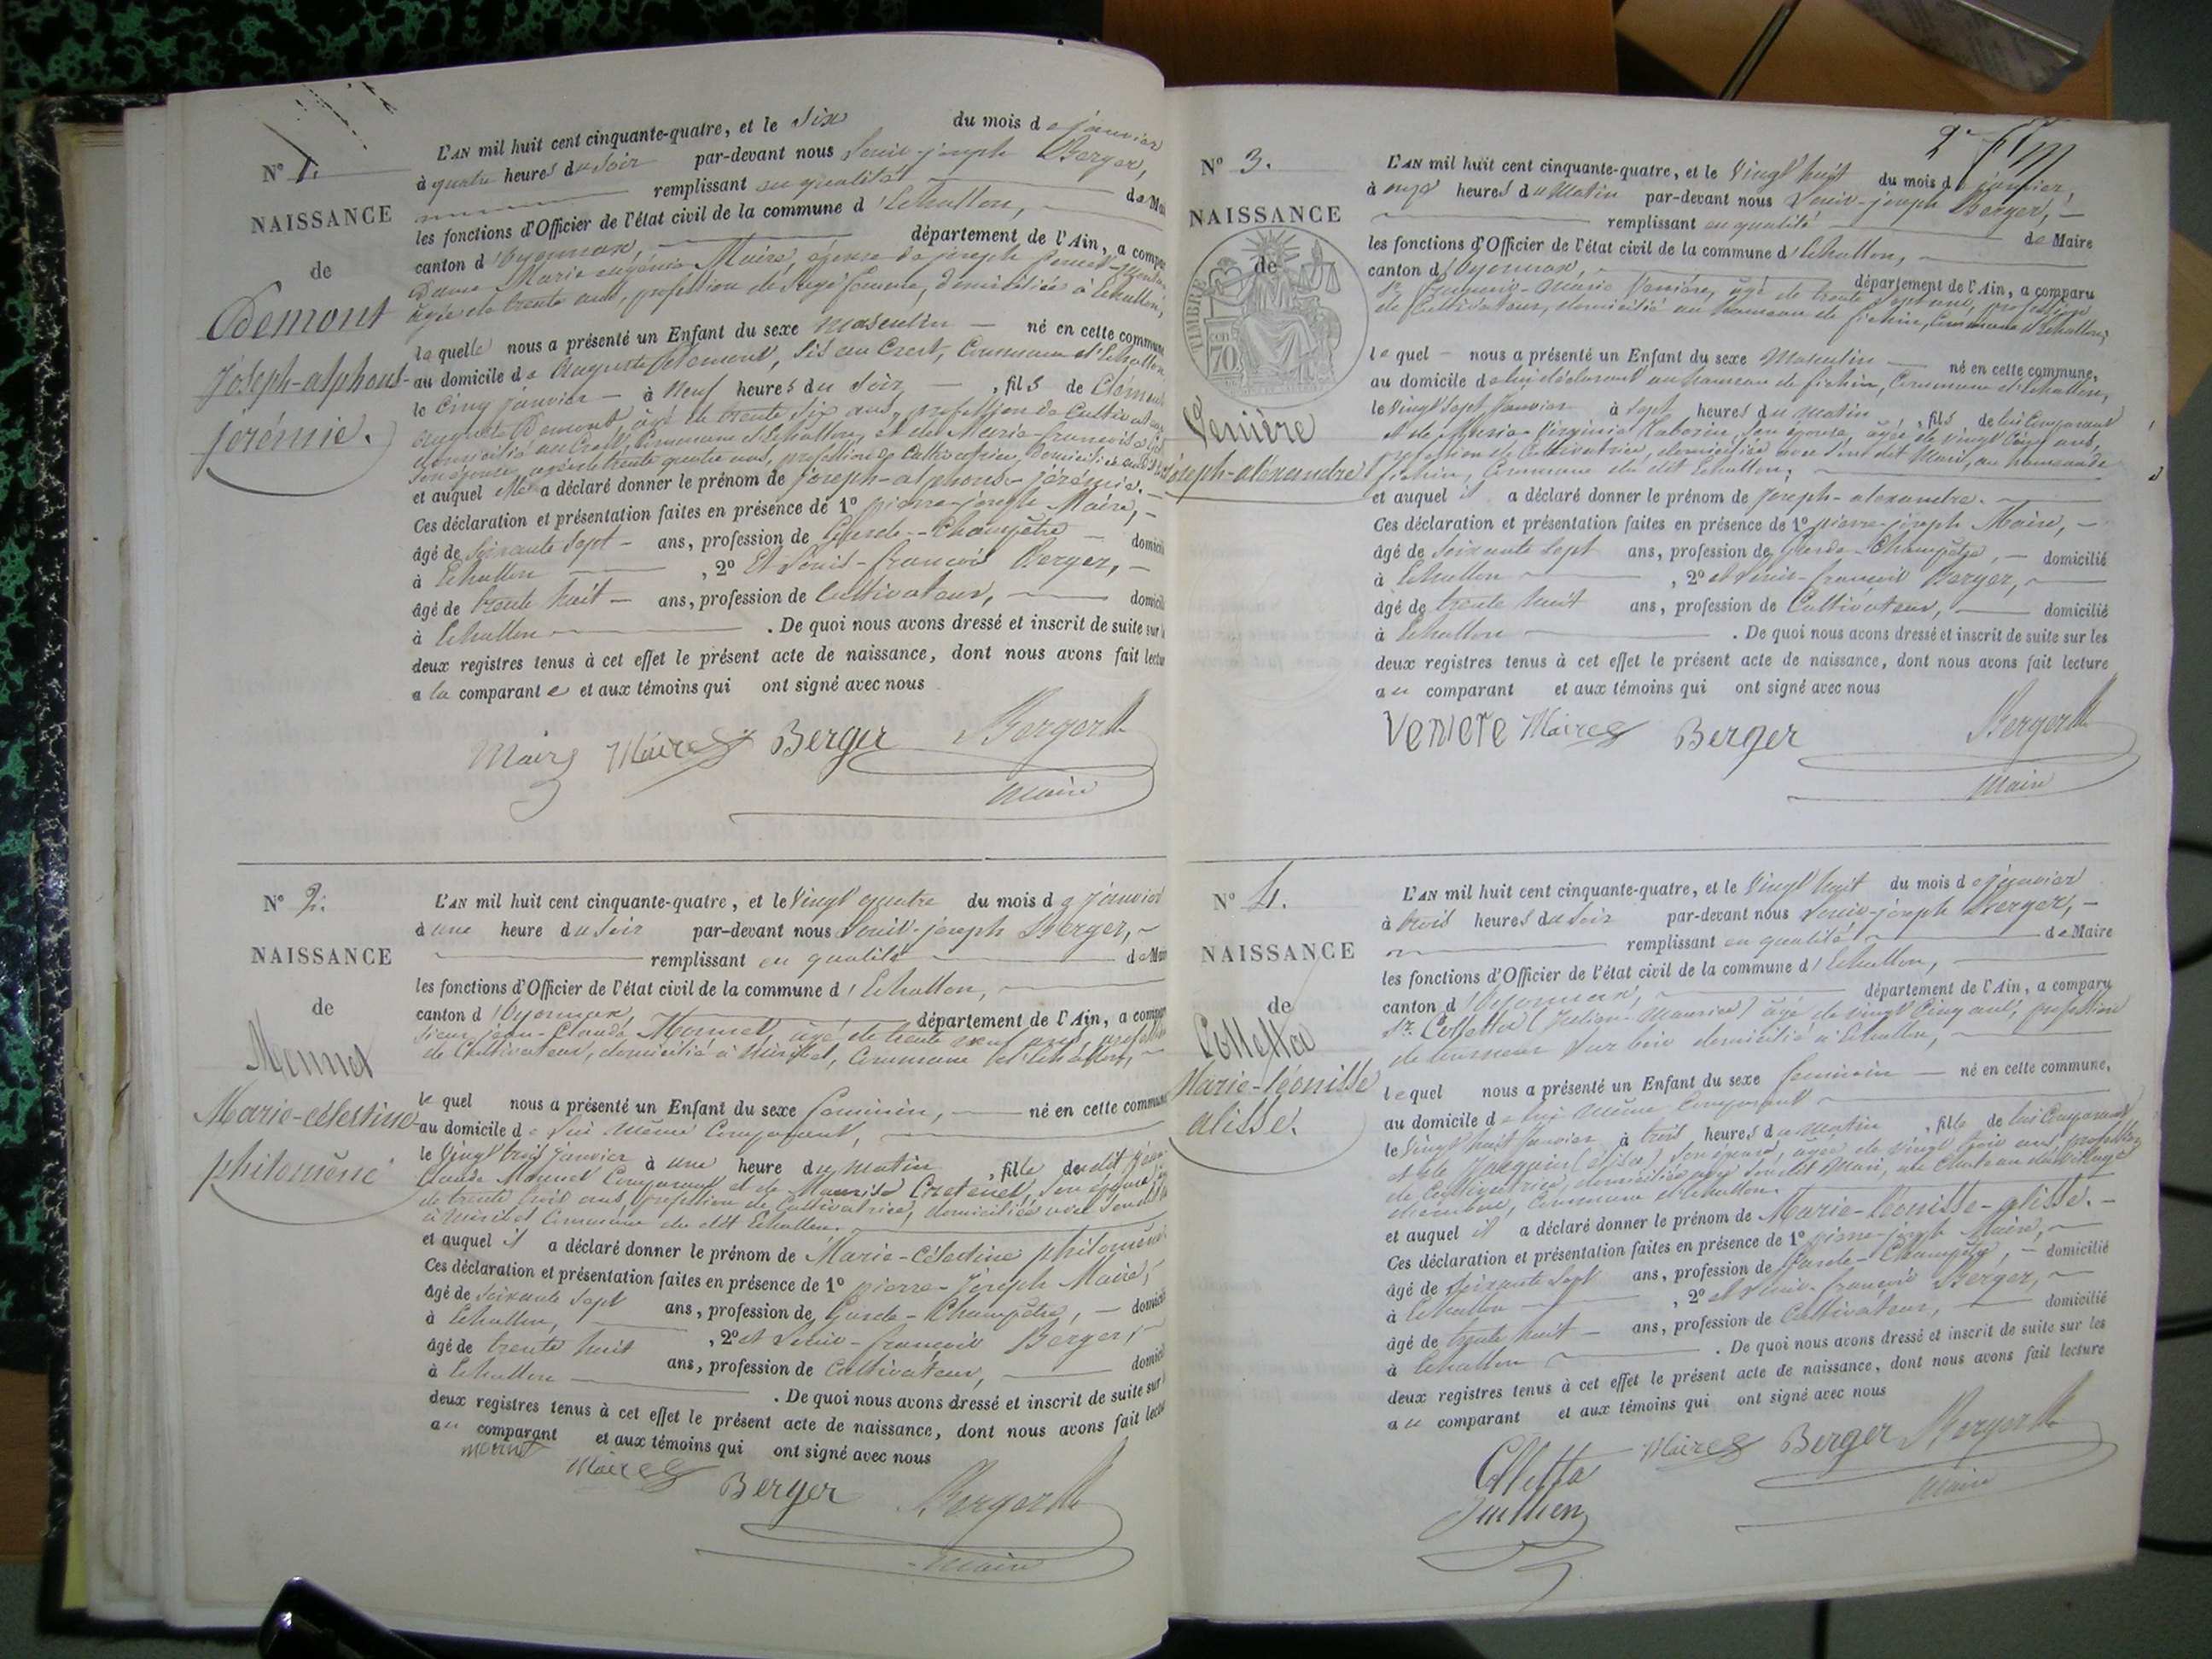 N° 1.
NAISSANCE
de
Démont
Joseph-alphonse-
jérémie.
L'AN mil huit cent cinquante-quatre, et le Six du mois de janvier
à quatre heures du Soir par-devant nous Louis-joseph Berger,
remplissant en qualité de Mai
les fonctions d'Officier de l'état civil de la commune d'Echallon,
canton d'Oyonnax, département de l'Ain, a compa
Dame Marie eugénie Maire, épouse de joseph
âgée de trente ans, profession de Sage femme, domiciliée à Echallon,
laquelle nous a présenté un Enfant du sexe masculin né en cette commune
au domicile de Auguste Démont, sis au Crest, Commune d'Echallon,
le Cinq janvier à Neuf heures du Soir, fils de Clément
Auguste Démont, âgé de trente Six ans, profession de Cultivateur
domicilié au Crest, Commune d'Echallon, et de Marie-françoise
Son épouse, agée de trente quatre ans, profession de Cultivatrice, domiciliée
et auquel elle a déclaré donner le prénom de joseph-alphonse-jérémie.
Ces déclaration et présentation faites en présence de 1° pierre-joseph Maire,
âgé de Soixante Sept ans, profession de Garde-Champêtre domicili
à Echallon, 2° Et Louis-françois Berger,
âgé de trente huit ans, profession de Cultivateur, domicili
à Echallon. De quoi nous avons dressé et inscrit de suite sur l
deux registres tenus à cet effet le présent acte de naissance, dont nous avons fait lectu
a la comparante et aux témoins qui ont signé avec nous
Maire Maire Berger Berger
Maire
N° 2.
NAISSANCE
de
Monnet
Marie-célestine
philomène
L'AN mil huit cent cinquante-quatre, et le Vingt quatre du mois de janvier
à une heure du Soir par-devant nous Louis-joseph Berger,
remplissant en qualité de Mair
les fonctions d'Officier de l'état civil de la commune d'Echallon,
canton d'Oyonnax, département de l'Ain, a compar
Sieur jean-Claude Monnet, âgé de trente neuf ans, profession
de Cultivateur, domicilié à Miribel, Commune d'Echallon,
lequel nous a présenté un Enfant du sexe féminin, né en cette commune
au domicile de Lui même Comparant,
le Vingt trois janvier à une heure du matin, fille de dit jean
Claude Monnet Comparant et de Cretenet, Son épouse
de trente trois ans, profession de Cultivatrice, domiciliée avec Son dit
à Miribel Commune du dit Echallon.
et auquel il a déclaré donner le prénom de Marie-Célestine philomène
Ces déclaration et présentation faites en présence de 1° pierre-Joseph Maire,
âgé de Soixante Sept ans, profession de Garde-Champêtre, domicili
à Echallon, 2° et Louis-françois Berger,
âgé de trente huit ans, profession de Cultivateur, domicil
à Echallon. De quoi nous avons dressé et inscrit de suite sur
deux registres tenus à cet effet le présent acte de naissance, dont nous avons fait lectu
au comparant et aux témoins qui ont signé avec nous
monnet Maire Berger Berger
Maire
N° 3.
NAISSANCE
de
TIMBRE
70
Venière
Joseph-alexandre
L'AN mil huit cent cinquante-quatre, et le Vingt huit du mois de janvier,
à onze heures du Matin par-devant nous Louis-joseph Berger,
remplissant en qualité de Maire
les fonctions d'Officier de l'état civil de la commune d'Echallon,
canton d'Oyonnax, département de l'Ain, a comparu
Sr. Marie Venière, âgé de trente Sept ans, profession
de Cultivateur, domicilié au hameau de fichin, Commune d'Echallon,
lequel nous a présenté un Enfant du sexe Masculin né en cette commune,
au domicile de lui déclarant au hameau de fichin, Commune d'Echallon,
le Vingt Sept Janvier à Sept heures du matin, fils de lui Comparant
et de Marie Virginie Son épouse, agée de vingt Cinq ans,
profession de Cultivatrice, domiciliée avec Son dit Mari, au hameau de
fichin, Commune du dit Echallon.
et auquel il a déclaré donner le prénom de Joseph-alexandre.
Ces déclaration et présentation faites en présence de 1° pierre-joseph Maire,
âgé de Soixante Sept ans, profession de Garde-Champêtre, domicilié
à Echallon, 2° et Louis-françois Berger,
âgé de trente huit ans, profession de Cultivateur, domicilié
à Echallon. De quoi nous avons dressé et inscrit de suite sur les
deux registres tenus à cet effet le présent acte de naissance, dont nous avons fait lecture
au comparant et aux témoins qui ont signé avec nous
VeNIere Maire Berger Berger
Maire
N° 4.
NAISSANCE
de
Colletta
Marie-léonisse
alisse.
L'AN mil huit cent cinquante-quatre, et le Vingt huit du mois de janvier
à trois heures du Soir par-devant nous Louis-joseph Berger,
remplissant en qualité de Maire
les fonctions d'Officier de l'état civil de la commune d'Echallon,
canton d'Oyonnax, département de l'Ain, a comparu
Sr. Colletta (Julien Maurice) âgé de vingt Cinq ans, profession
de tourneur Sur bois domicilié à Echallon,
lequel nous a présenté un Enfant du sexe féminin né en cette commune,
au domicile de lui même Comparant
le Vingt huit Janvier à trois heures du matin, fille de lui Comparant
et de (élise) Son épouse, agée de vingt trois ans, profession
de Cultivatrice, domiciliée avec Son dit Mari, au Village
Commune d'Echallon.
et auquel il a déclaré donner le prénom de Marie-léonisse-alisse.
Ces déclaration et présentation faites en présence de 1° pierre-joseph Maire,
âgé de Soixante Sept ans, profession de Garde-Champêtre, domicilié
à Echallon, 2° et Louis-françois Berger,
âgé de trente huit ans, profession de Cultivateur, domicilié
à Echallon. De quoi nous avons dressé et inscrit de suite sur les
deux registres tenus à cet effet le présent acte de naissance, dont nous avons fait lecture
au comparant et aux témoins qui ont signé avec nous
Colletta Maire Berger Berger
Juillien Maire